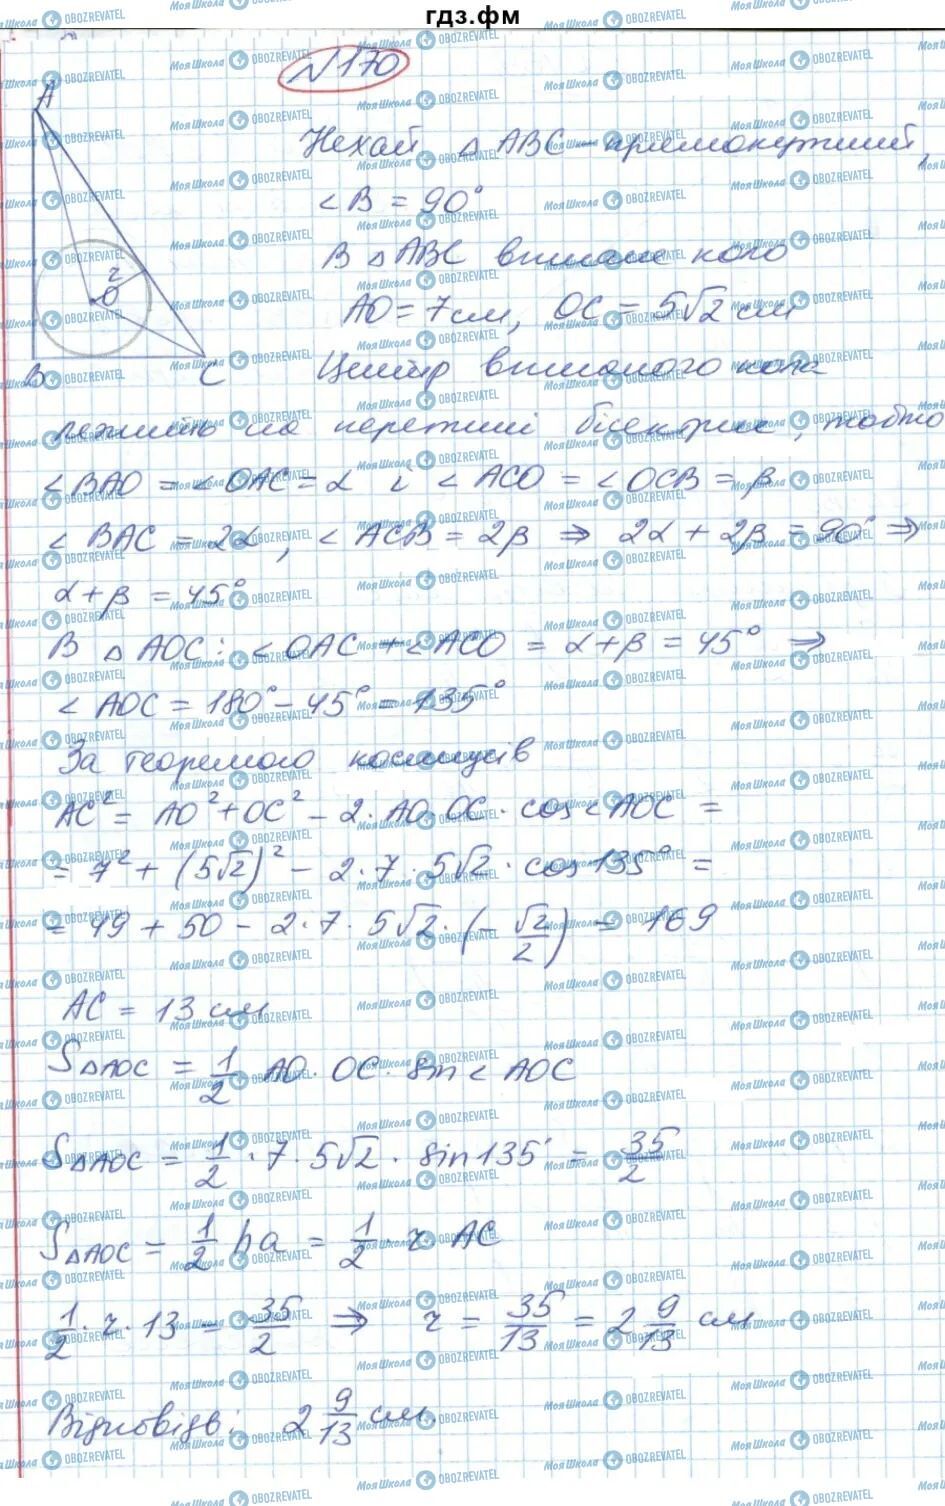 гдз.фм
№170
A
r
O
B
C
Нехай △ABC - прямокутний,
∠B = 90°
В △ABC вписане коло
AO = 7 см, OC = 5√2 см
Центр вписаного кола
лежить на перетині бісектрис, тобто
∠BAO = ∠OAC = α і ∠ACO = ∠OCB = β
∠BAC = 2α, ∠ACB = 2β ⇒ 2α + 2β = 90° ⇒
α + β = 45°
В △AOC: ∠OAC + ∠ACO = α + β = 45° ⇒
∠AOC = 180° - 45° = 135°
За теоремою косинусів
AC² = AO² + OC² - 2 · AO · OC · cos ∠AOC =
= 7² + (5√2)² - 2 · 7 · 5√2 · cos 135° =
= 49 + 50 - 2 · 7 · 5√2 · (- √2/2) = 169
AC = 13 см
S△AOC = 1/2 AO · OC · sin ∠AOC
S△AOC = 1/2 · 7 · 5√2 · sin 135° = 35/2
S△AOC = 1/2 ha = 1/2 · r · AC
1/2 · r · 13 = 35/2 ⇒ r = 35/13 = 2 9/13 см
Відповідь: 2 9/13 см.
МояШкола OBOZREVATEL